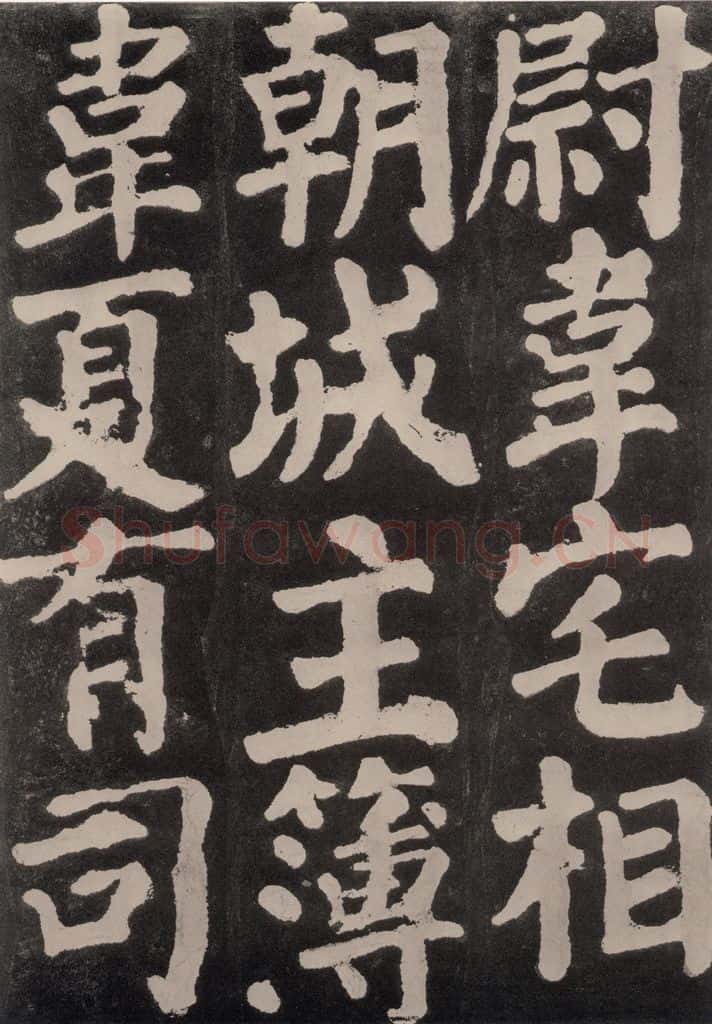 尉韋宅相
朝城主簿
韋夏有司
Shufawang.CN